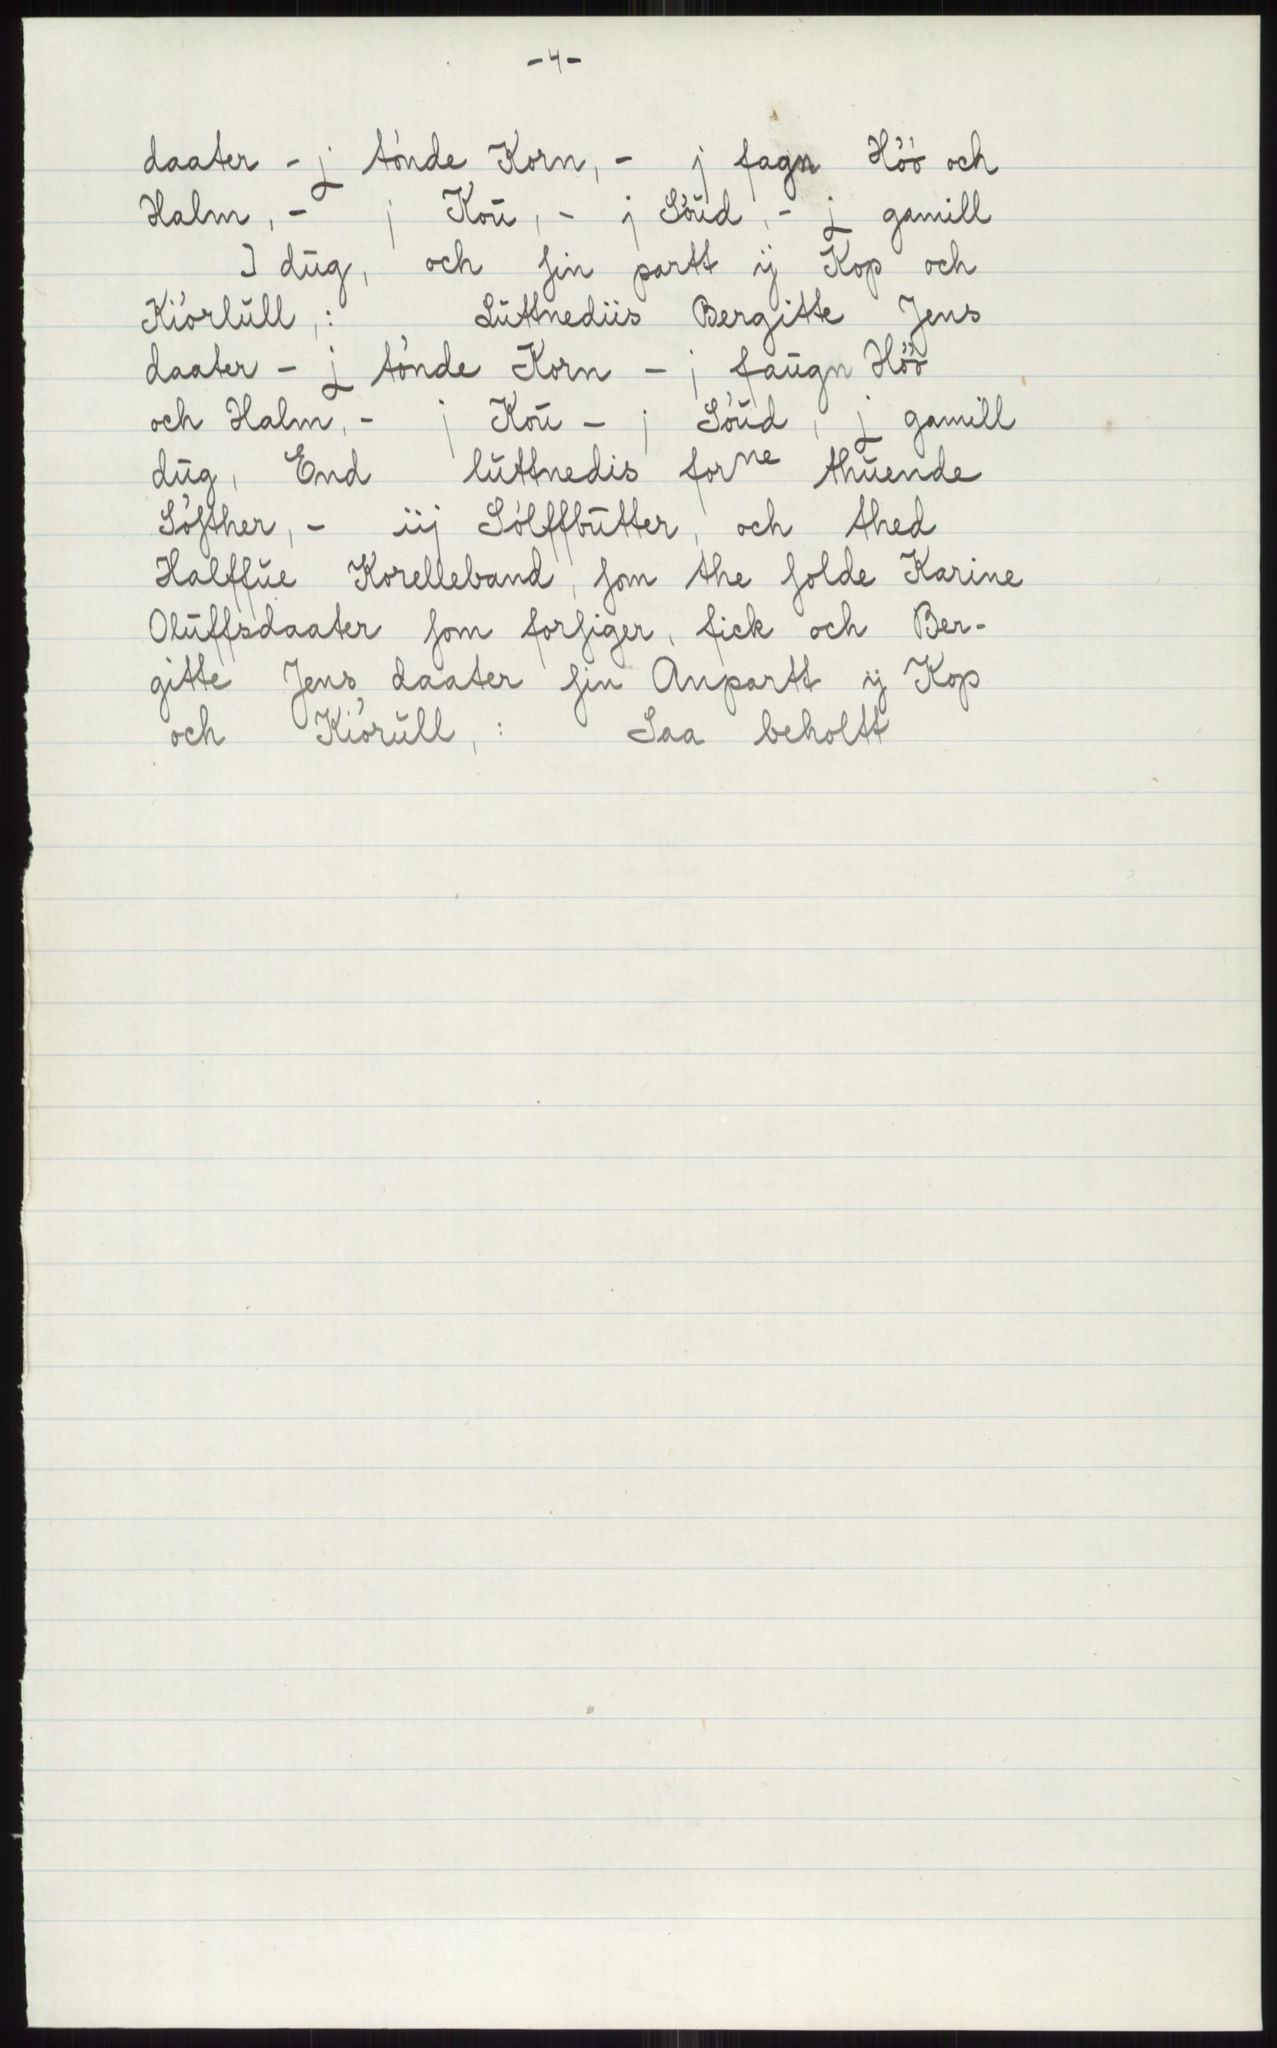 -4-
daater - j tónde Korn, - j fagn Hóó och
Halm, - j Koū, - j Sóūd, - j gamill
] dūg, och ſin partt ij Kop och
Kiórlūll,: Lūttnediis Bergitte Jens
daater - j tónde Korn - j faūgn Hóó
och Halm, - j Koū - j Sóūd, j gamill
dūg, End lūttnedis forne thūende
Sóſther, - iij Sólffbūtter, och thed
Halffūe Korelleband, ſom the ſolde Karine
Olūffsdaater ſom forſiger, fick och Ber-
gitte Jens daater ſin Anpartt ij Kop
och Kiórūll,: Saa beholtt